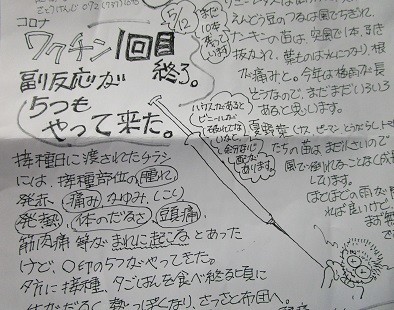 コロナ
5/12
ワクチン1回目
終了。
副反応が
5つも
やって来た。
接種日に渡されてたチラシ
には、接種部位の腫れ、
発赤、痛み、かゆみ、しこり
発熱、体のだるさ、頭痛、
筋肉痛 等がまれに起こるとあった
けど、○印の5つがやってきた。
夕方に接種、夕ごはんを食べ終る頃に
体がだるく熱っぽくなり、さっさと布団へ。
まだ
10本
えんどう豆のつるは風でちぎれ、
ナンキンの苗は、突風で1本、引き
抜かれ、葉ものは水につかり、根
が痛みと。今年は梅雨が長
そうなので、まだまだいろいろ
あると思います。
ハウスがあると
ビニールが
破れてない
余分な
心配が
あります
夏野菜(ナス、ピーマン、とうがらし、トマ
たちの苗はまだ小さいので
風で倒れることなく成長
しています。
ほどほどの雨が
れば良いけど